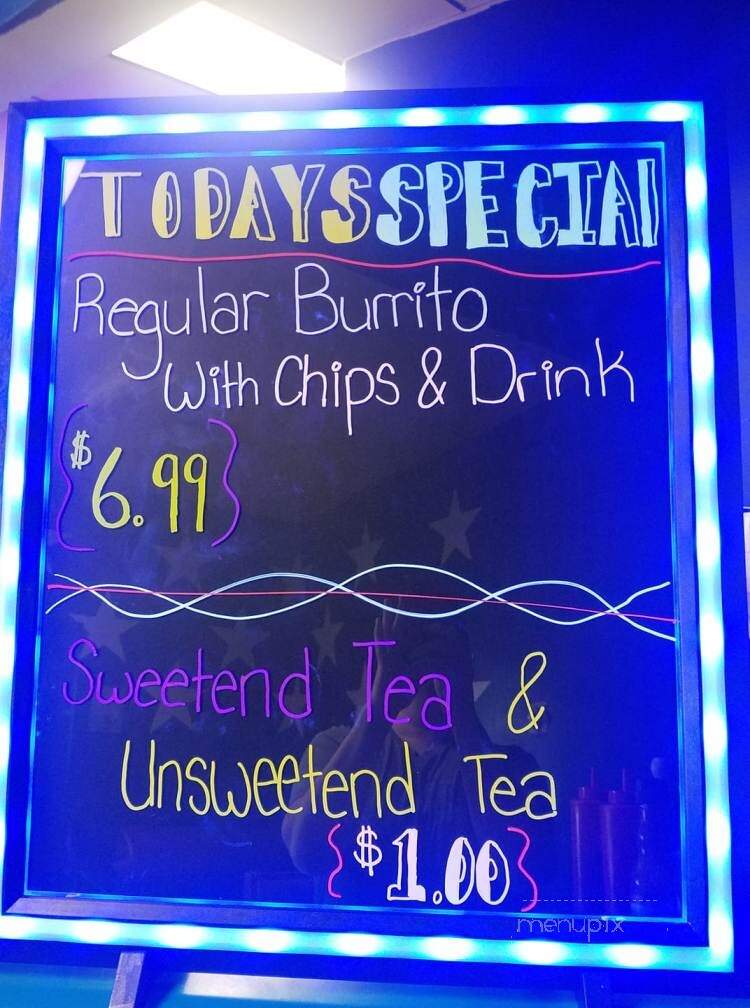 TODAYS SPECIAL
Regular Burrito
With Chips & Drink
$6.99
Sweetend Tea &
Unsweetend Tea
$1.00
menupix